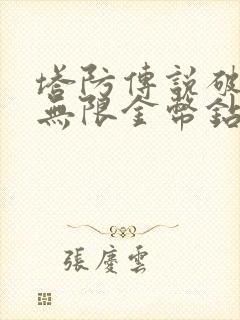 塔防傳說破
無限金幣鉆
張慶雲